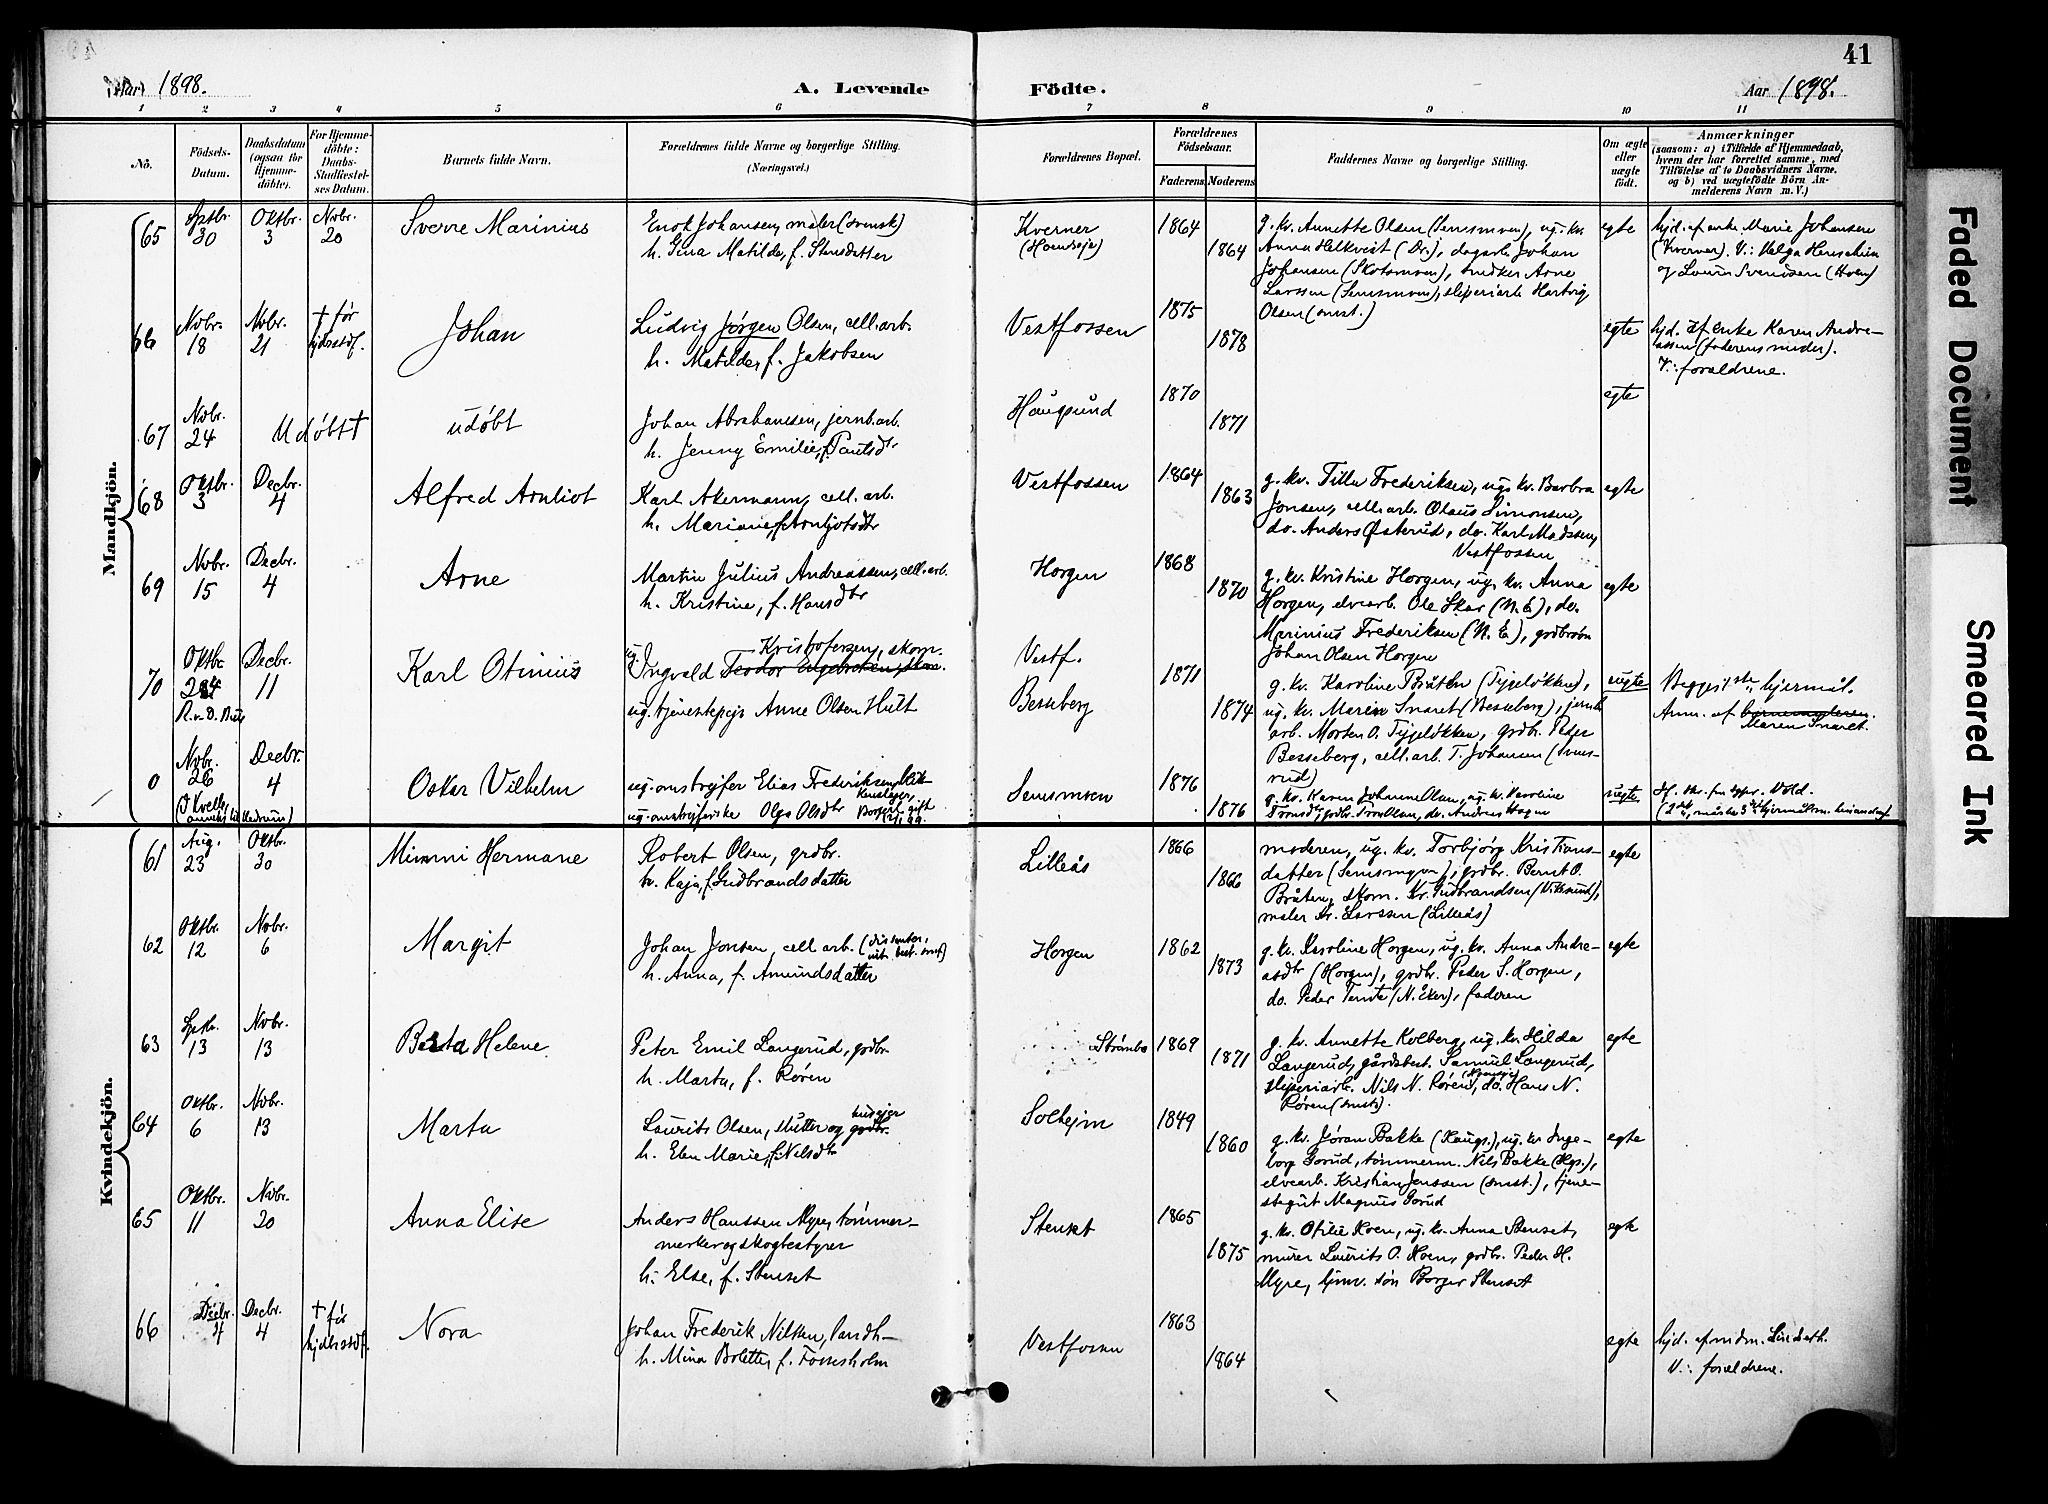 41
Aar 1898.
A. Levende Fødte.
Aar 1898.
1 2 3 4 5 6 7 8 9 10 11
No.
Fødsels-Datum.
Daabsdatum (ogsaa for Hjemmedøbte).
For Hjemmedøbte: Daabs-Stadfæstelses Datum.
Barnets fulde Navn.
Forældrenes fulde Navne og borgerlige Stilling. (Næringsvei.)
Forældrenes Bopæl.
Forældrenes Fødselsaar.
Faderens Moderens
Faddernes Navne og borgerlige Stilling.
Om ægte eller uægte født.
Anmærkninger
(saasom: a) i Tilfælde af Hjemmedaab, hvem der har forrettet samme, med Tilføielse af to Daabsvidners Navne, og b) ved uægtefødte Børn Anmelderens Navn m. V.)
Mandkjøn.
65 Sptbr. 30 Oktbr. 3 Novbr. 20 Sverre Marinius
Enok Johansen, maler (svensk)
h. Gina Matilde, f. Stensdatter
Kverner
1864 1864
g. kv. Annette Olsen (Semsmoen), ug. kv.
Anna Helkvist (Dr.), dagarb. Johan
Johansen (Skotsmoen), snedker Arne
Larssen (Semsmoen), sliperiarb. Hartvig
Olsen (smst.)
egte
hjd. af enke Marie Johansen
(Kverner). V.: Helga
og Svensen (Hoen)
66 Novbr. 18 Novbr. 21 † før hjdsstdf. Johan
Ludvig Jørgen Olsen, cell. arb.
h. Matilde, f. Jakobsen
Vestfossen
1875 1878
egte
hjd. af enke Karen Andreassen (faderens moder).
V.: forældrene.
67 Novbr. 24 Udøbt † udøbt
Johan Abrahamsen, jernb.arb.
h. Jenny Emilie, f. Paulsdtr
Haugsund
1870 1871
egte
68 Oktbr. 3 Decbr. 4 Alfred Arnliot
Karl Akermann, cell. arb.
h. Mariane, f. Arnljotsdtr
Vestfossen
1864 1863
g. kv. Tilla Frederiksen, ug. kv. Barbra
Jonsen, cell. arb. Olaus Simonsen,
do. Anders Østerud, do. Karl Madssen,
Vestfossen
egte
69 Novbr. 15 Decbr. 4 Arne
Martin Julius Andreassen, cell. arb.
h. Kristine, f. Hansdtr
Horgen
1868 1870
g. kv. Kristine Horgen, ug. kv. Anna
Horgen, elvearb. Ole Skar (N. E.), do.
Marinius Frederiksen (N. E.), grdbr.søn
Johan Olsen Horgen
egte
70 Oktbr. 24 Decbr. 11 Karl Otinius
Kristofersen, skom.
ug. Ingvald Teodor
ug. tjenestepige Anne Olsen Hult
Vestf.
Besseberg
1871 1874
g. kv. Karoline Bråten (Tegeløkken),
ug. kv. Maren Snaret (Besseberg), jernb.
arb. Morten O. Tegeløkken, grdbr. Peder
Besseberg, cell. arb. T. Johansen
uegte
Begges 1ste lejermål.
Anm. af
Maren Snaret.
0 Novbr. 26 Decbr. 4 Oskar Vilhelm
ug. omstrejfer Elias Frederiksen
ug. omstreiferske Olga Olsdtr
Semsmoen
1876 1876
g. kv. Karen Johanne Olsen, ug. kv. Karoline
Tronsdtr, grdbr. Tron Olsen, do. Anders Hagen
uegte
Kvindekjøn.
61 Aug. 23 Oktbr. 30 Mimmi Hermane
Robert Olsen, grdbr.
h. Kaja, f. Gudbrandsdatter
Lilleås
1866 1866
moderen, ug. kv. Torbjørg Kristians-
datter (Semsmoen), grdbr. Bernt O.
Bråten, skom. Kr. Gudbrandsen (Viksund),
maler Kr. Larssen (Lilleås)
egte
62 Oktbr. 12 Novbr. 6 Margit
Johan Jonsen, cell arb. (dissenter,
h. Anna, f. Amundsdatter
Horgen
1862 1873
g. kv. Karoline Horgen, ug. kv. Anna Andre-
asdtr (Horgen), grdbr. Peder S. Horgen,
do. Peder Temte (N. Eker), faderen
egte
63 Sptbr. 13 Novbr. 13 Berta Helene
Peter Emil Langerud, grdbr
h. Marta, f. Røren
Strømbo
1869 1871
g. kv. Annette Kolberg, ug. kv. Hilda
Langerud, gårdbest. Samuel Langerud,
sliperiarb. Nils N. Røren, do. Hans N.
Røren (smsts.)
egte
64 Oktbr. 6 Novbr. 13 Marta
Laurits Olsen, slutter og husejer
h. Elen Marie, f. Nilsdtr
Solhejm
1849 1860
g. kv. Jøran Bakke (Haugs.), ug. kv. Inge-
borg Gorud, tømmerm. Nils Bakke (Hgs.),
elvearb. Kristian Jenssen (smst.), tjene-
stegut Magnus Gorud
egte
65 Oktbr. 11 Novbr. 20 Anna Elise
Anders Hanssen Myre, tømmer-
merker og skogbestyrer
h. Else, f. Stenset
Stenset
1865 1875
g. kv. Otilie Hoen, ug. kv. Anna Stenset,
murer Laurits O. Hoen, grdbr. Peder H.
Myre, hjmv. søn Borger Stenset
egte
66 Decbr. 4 Decbr. 4 † før hjdbsstdf. Nora
Johan Frederik Nilsen, landh-
h. Mina Bolette, f. Fossesholm
Vestfossen
1863 1864
egte
hjd. af mdm. Lindseth.
V.: forældrene.
Faded Document
Smeared Ink